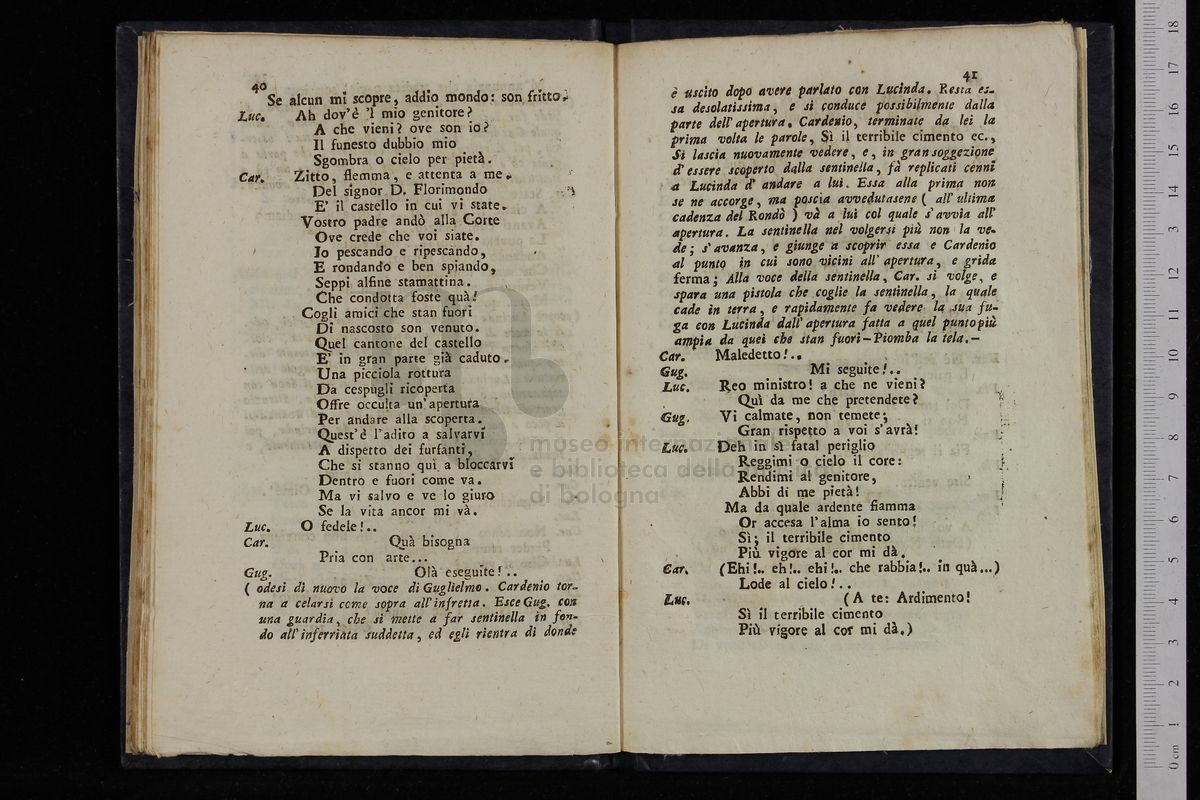 40
Se alcun mi scopre, addio mondo: son fritto.
Luc. Ah dov'è 'l mio genitore?
A che vieni? ove son io?
Il funesto dubbio mio
Sgombra o cielo per pietà.
Car. Zitto, flemma, e attenta a me.
Del signor D. Florimondo
E' il castello in cui vi state.
Vostro padre andò alla Corte
Ove crede che voi siate.
Io pescando e ripescando,
E rondando e ben spiando,
Seppi alfine stamattina.
Che condotta foste quà!
Cogli amici che stan fuori
Di nascosto son venuto.
Quel cantone del castello
E' in gran parte già caduto.
Una picciola rottura
Da cespugli ricoperta
Offre occulta un'apertura
Per andare alla scoperta.
Quest'è l'adito a salvarvi
A dispetto dei furfanti,
Che si stanno quì a bloccarvi
Dentro e fuori come va.
Ma vi salvo e ve lo giuro
Se la vita ancor mi và.
Luc. O fedele!..
Car. Quà bisogna
Pria con arte...
Gug. Olà eseguite!..
( odesi di nuovo la voce di Guglielmo. Cardenio tor-
na a celarsi come sopra all'infretta. Esce Gug. con
una guardia, che si mette a far sentinella in fon-
do all'inferriata suddetta, ed egli rientra di donde
41
è uscito dopo avere parlato con Lucinda. Resta es-
sa desolatissima, e si conduce possibilmente dalla
parte dell'apertura. Cardenio, terminate da lei la
prima volta le parole, Sì il terribile cimento ec.,
Si lascia nuovamente vedere, e, in gran soggezione
d'essere scoperto dalla sentinella, fà replicati cenni
a Lucinda d'andare a lui. Essa alla prima non
se ne accorge, ma poscia avvedutasene ( all'ultima
cadenza del Rondò ) và a lui col quale s'avvia all'
apertura. La sentinella nel volgersi più non la ve-
de; s'avanza, e giunge a scoprir essa e Cardenio
al punto in cui sono vicini all'apertura, e grida
ferma; Alla voce della sentinella, Car. si volge, e
spara una pistola che coglie la sentinella, la quale
cade in terra, e rapidamente fa vedere la sua fu-
ga con Lucinda dall'apertura fatta a quel punto più
ampia da quei che stan fuori - Piomba la tela. -
Car. Maledetto!..
Gug. Mi seguite!..
Luc. Reo ministro! a che ne vieni?
Quì da me che pretendete?
Gug. Vi calmate, non temete;
Gran rispetto a voi s'avrà!
Luc. Deh in sì fatal periglio
Reggimi o cielo il core:
Rendimi al genitore,
Abbi di me pietà!
Ma da quale ardente fiamma
Or accesa l'alma io sento!
Sì; il terribile cimento
Più vigore al cor mi dà.
Car. (Ehi!.. eh!.. ehi!.. che rabbia!.. in quà...)
Lode al cielo!..
Luc. (A te: Ardimento!
Sì il terribile cimento
Più vigore al cor mi dà.)
museo internazionale
e biblioteca della musica
di bologna
0 cm 1 2 3 4 5 6 7 8 9 10 11 12 13 14 15 16 17 18